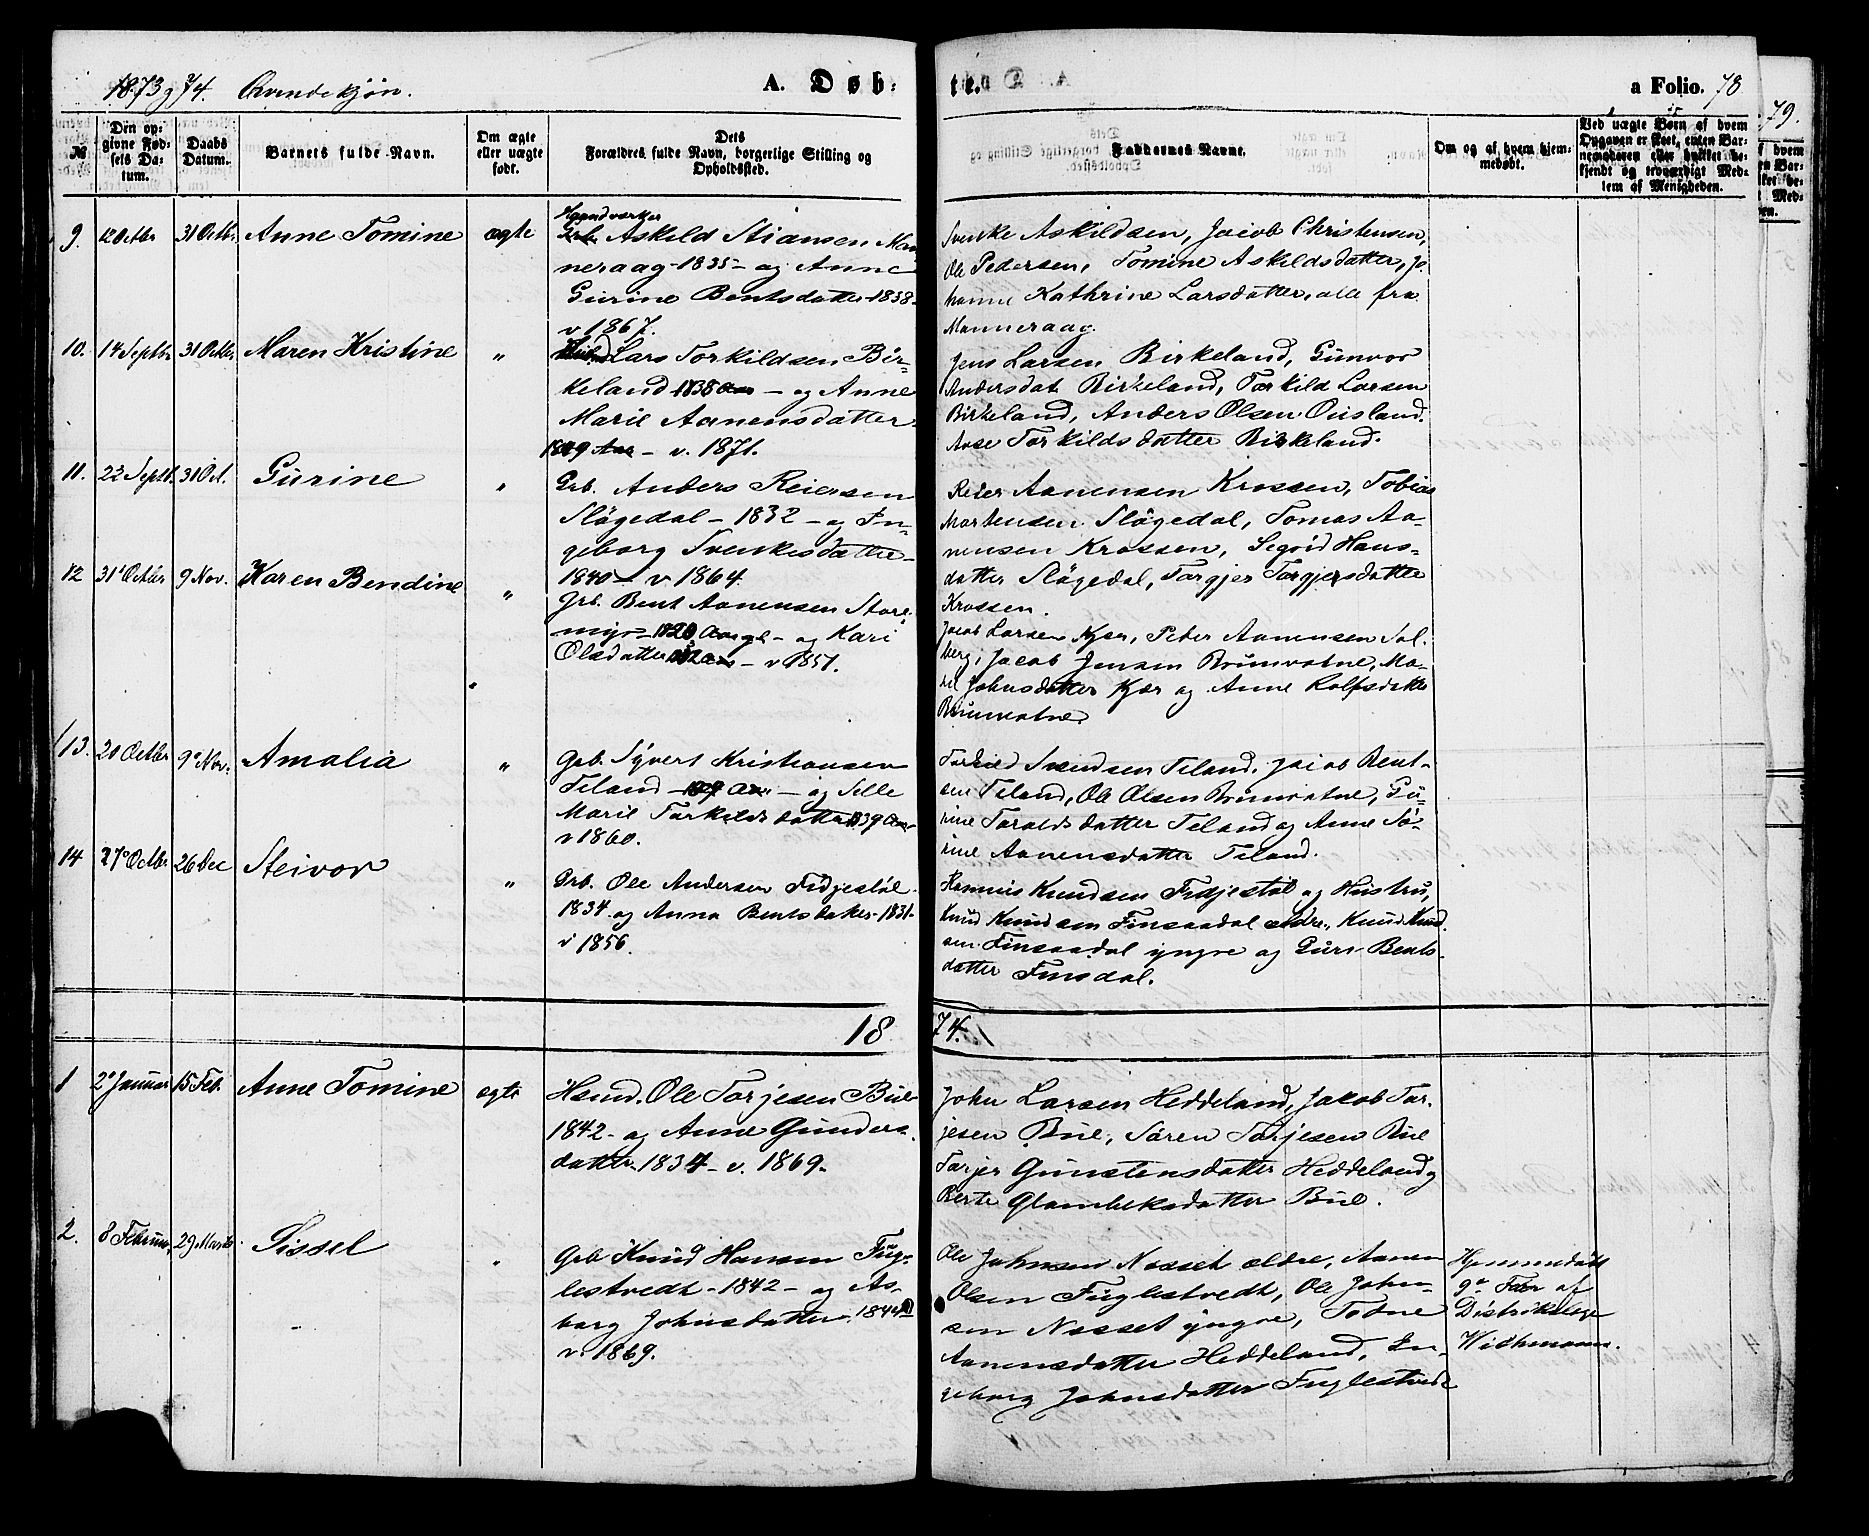 1873 og 74. Qvindekjøn.
A. Døb-
te.
a Folio. 78
79.
№
Den op-
givne Fød-
sels Da-
tum.
Daabs
Datum.
Barnets fulde Navn.
Om ægte
eller uægte
født.
Dets
Forældres fulde Navn, borgerlige Stilling og
Opholdssted.
Faddernes Navne.
Om og af hvem hjem-
medøbt.
Ved uægte Børn af hvem
Opgaven er skeet, enten Bar-
nemoderen eller hvilket be-
kjendt og troværdigt Med-
lem af Menigheden.
9. 12 Octbr 31 Octbr. Anne Tomine ægte
Haandværker
Grb. Askild Stiansen Man-
neraag - 1835 - og Anne
Gurine Bentsdatter - 1838 -
v 1867.
Svenke Askildsen, Jacob Christensen,
Ole Pedersen, Tomine Askildsdatter, Jo-
hanne Kathrine Larsdatter, alle fra
Manneraag.
10. 14 Septbr 31 Octbr. Maren Kristine "
Lars Torkildsen Bir-
keland 1838 Aar - og Anne
Marie Aanensdatter
1849 Aar - v. 1871.
Jens Larsen Birkeland, Gunvor
Andersdat Birkeland, Torkild Larsen
Birkeland, Anders Olsen Ousland.
Aase Torkildsdatter Birkeland.
11. 23 Septb. 31 Oct. Gurine "
Grb. Anders Reiersen
Sløgedal - 1832 - og In-
geborg Svenkesdatter
1840 - v 1864.
Reier Aanensen Krossen, Tobias
Mortensen Sløgedal, Tomas Aa-
nensen Krossen, Segrid Hans-
datter Sløgedal, Torgjer Torgjersdatter
Krossen.
12 31 Octbr 9 Nov. Karen Bendine "
Grb. Bent Aanensen Store-
myr - og Kari
Olsdatter - v 1851.
Jacob Larsen Kjær, Peter Aanensen Sol-
berg, Jacob Jensen Brunvatne, Ma-
ri Johnsdatter Kjær og Anne Rolfsdatter
Brunvatne.
13. 20 Octbr 9 Nov. Amalia "
Grb. Syvert Kristiansen
Teland - og Sille
Marie Torkildsdatter 1839 Aar
v 1860.
Torkild Svendsen Teland, Jacob Bent-
sen Teland, Ole Olsen Brunvatne, Gu-
rine Taraldsdatter Teland og Anne So-
rine Aanensdatter Teland.
14 27 Octbr 26 Dec Steivor "
Grb. Ole Andersen Fidjestøl
1834 og Anna Bentsdatter - 1831 -
v 1856.
Rasmus Knudsen Fidjestøl og Hustru,
Knud Knudsen Finsaadal ældre, Knud Knud-
sen Finsaadal yngre og Guri Bents-
datter Finsdal.
18 74.
1 2 Januar 15 Feb. Anne Tomine ægte
Huusmd. Ole Torjesen Bue
1842 - og Anne Gunders-
datter 1834 - v. 1869.
John Larsen Heddeland, Jakob Tor-
jesen Bue, Søren Torjesen Bue
Torjer Gunstensdatter Heddeland og
Berte Glambeksdatter Bue.
2. 8 Februar 29 Marts. Sissel "
Grb Knud Hansen Fug-
lestvedt - 1842 - og As-
borg Johnsdatter 1844
v. 1869.
Ole Johnsen Nosset ældre, Aanen
Olsen Fuglestvedt, Ole John-
sen Nosset yngre, Todne
Aanensdatter Heddeland, In-
geborg Johnsdatter Fuglestvedt
Hjemmedøbt
9 Febr af
Distriktslæge
Widhmann.